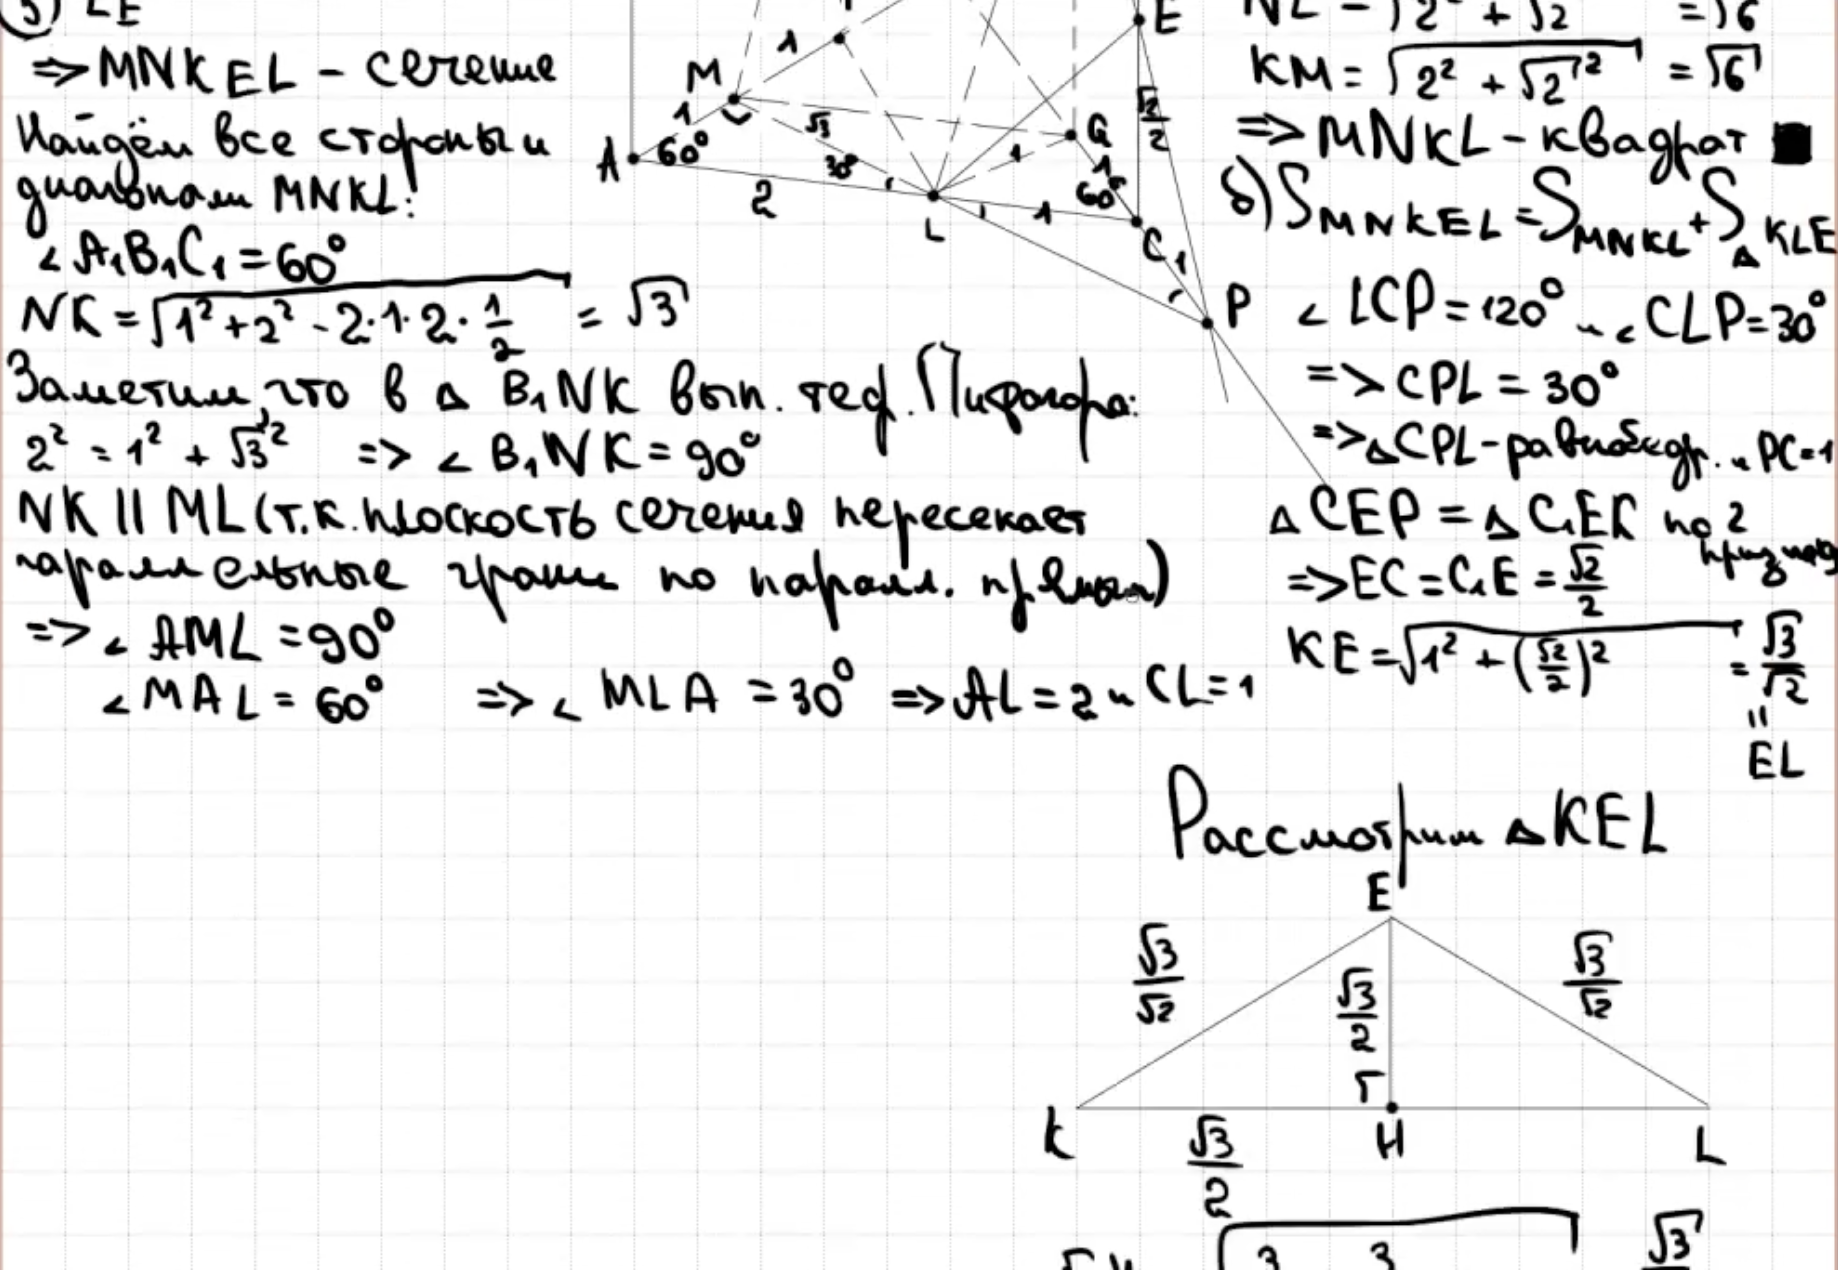 3) LE
=> MNKEL - сечение
Найдём все стороны и
диагонали MNKL:
∠ A₁B₁C₁ = 60°
NK = √1² + 2² - 2·1·2·1/2 = √3
Заметим, что в △ B₁NK вып. теор. Пифагора:
2² = 1² + √3² => ∠ B₁NK = 90°
NK || ML (т.к. плоскость сечения пересекает
параллельные грани по паралл. прямым)
=> ∠ AML = 90°
∠ MAL = 60° => ∠ MLA = 30° => AL = 2 и CL = 1
M
1
1
A
60°
√3
30°
2
L
1
1
G
1
60°
C
1
P
E
√2/2
= √6
KM = √2² + √2² = √6
=> MNKL - квадрат
б) S MNKEL = S MNKL + S △ KLE
∠ LCP = 120° и ∠ CLP = 30°
=> CPL = 30°
=> △ CPL - равнобедр. и PC = 1
△ CEP = △ C₁EK по 2
=> EC = C₁E = √2/2
KE = √1² + (√2/2)² = √3/√2
"
EL
Рассмотрим △ KEL
E
√3/√2
√3/2
√3/√2
K
H
L
√3/2
3 3 √3